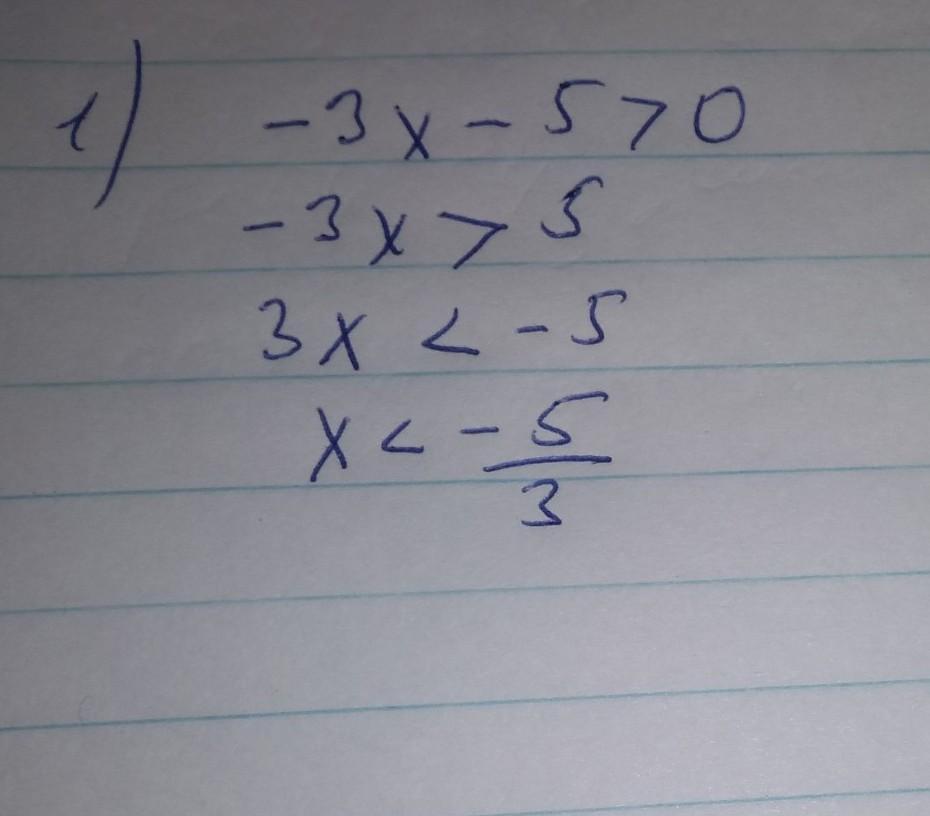 1) -3x - 5 > 0
-3x > 5
3x < -5
x < -5/3